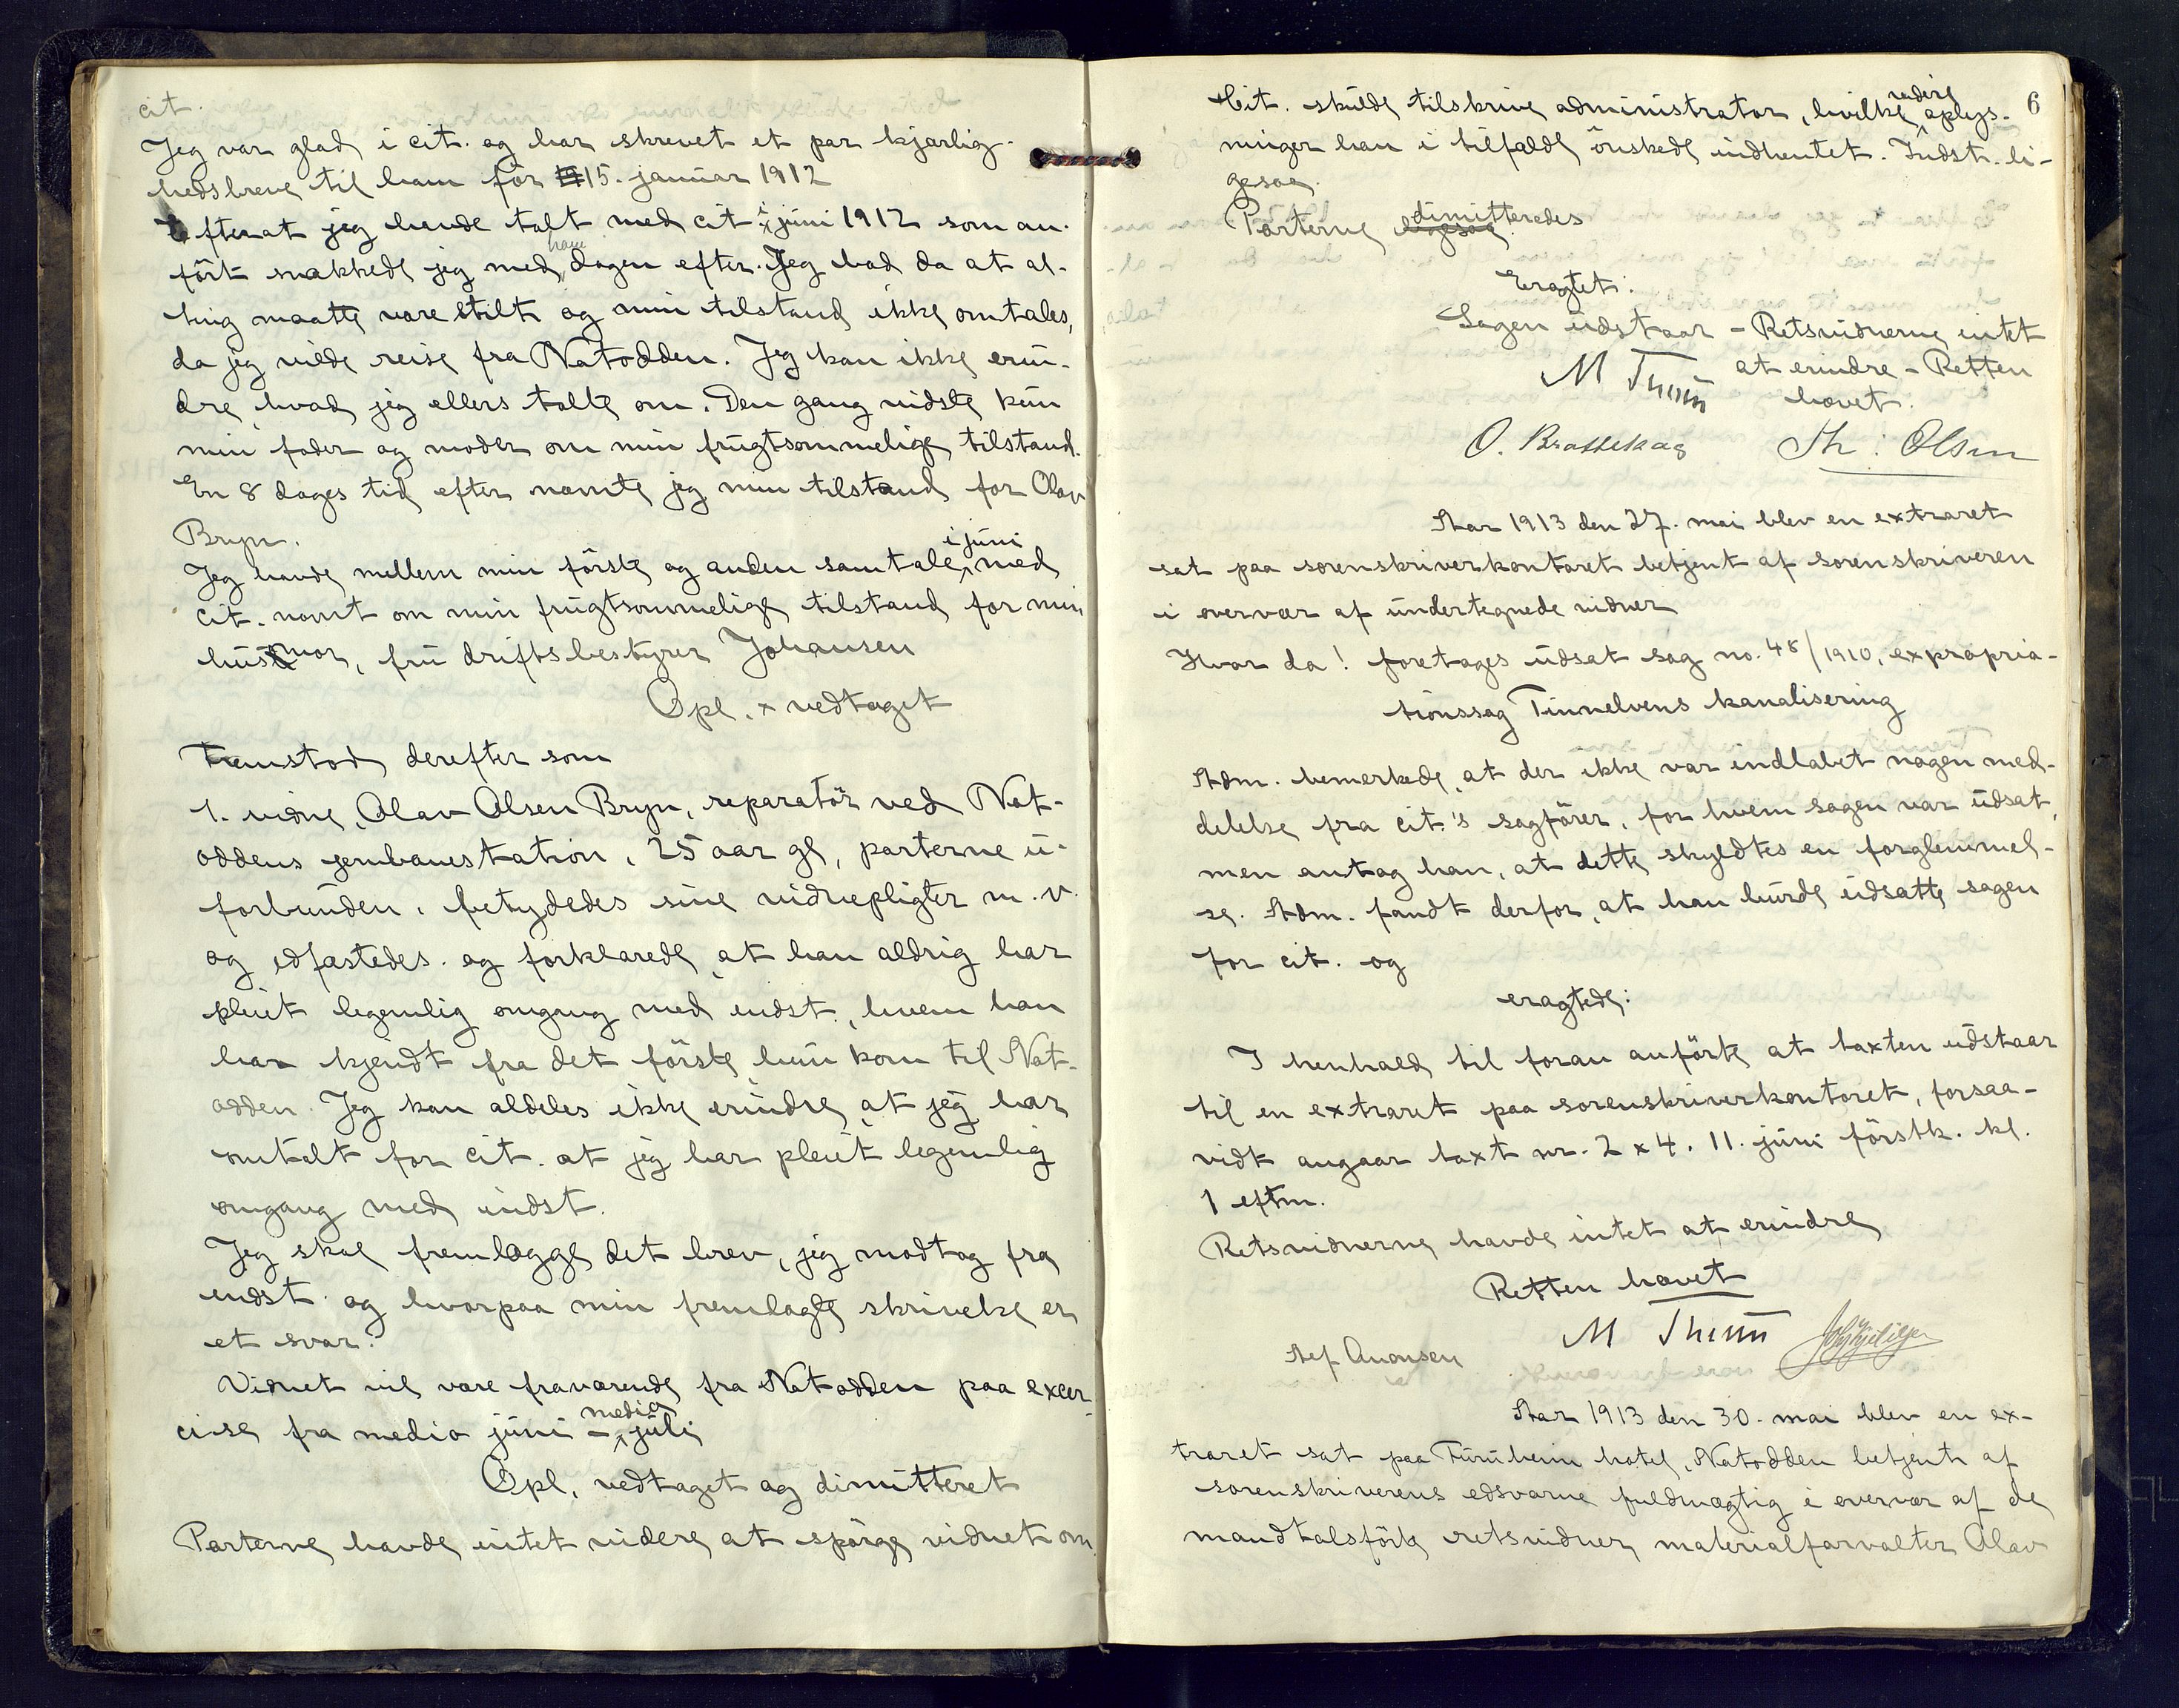 cit.
Jeg var glad i cit. og har skrevet et par kjærlig-
hedsbreve til ham før 15. januar 1912
Efterat jeg havde talt med cit i juni 1912 som an-
ført snakkede jeg med ham dagen efter. Jeg bad da at al-
ting maatte være stilt og min tilstand ikke omtales,
da jeg vilde reise fra Notodden. Jeg kan ikke erin-
dre, hvad jeg ellers talte om. Den gang vidste kun
min fader og moder om min frugtsommelige tilstand.
En 8 dages tid efter nævnte jeg min tilstand for Olav
Bryn.
Jeg havde mellem min første og anden samtale i juni med
cit. nævnt om min frugtsommelige tilstand for min
husmor, fru driftsbestyrer Johansen
Opl. x vedtaget
Fremstod derefter som
1. vidne, Olav Olsen Bryn, reparatør ved Not-
oddens jernbanestation, 25 aar gl, parterne u-
forbunden, betydedes sine vidnepligter m. v.
og edfæstedes og forklarede, at han aldrig har
pleiet legemlig omgang med indst., hvem han
har kjendt fra det første hun kom til Not-
odden. Jeg kan aldeles ikke erindre, at jeg har
omtalt for cit. at jeg har pleiet legemlig
omgang med indst.
Jeg skal fremlægge det brev, jeg modtog fra
indst. og hvorpaa min fremlagte skrivelse er
et svar.
Vidnet vil være fraværende fra Notodden paa excer-
cise fra medio juni - medio juli
Opl, vedtaget og dimitteret
Parterne havde intet videre at spørge vidnet om.
6
Cit. skulde tilskrive administrator, hvilke videre oplys-
ninger han i tilfælde ønskede indhentet. Indst. li-
gesaa.
Parterne ligesaa dimitteredes
Eragtet:
Sagen udstaar - Retsvidnerne intet
at erindre - Retten
hævet.
M Thuun
O. Brattekaas Th: Olsen
Aar 1913 den 27. mai blev en extraret
sat paa sorenskriverkontoret betjent af sorenskriveren
i overvær af undertegnede vidner
Hvor da! foretages udsat sag no. 48/1910, expropria-
tionssag Tinnelvens kanalisering
Adm. bemerkede, at der ikke var indløbet nogen med-
delelse fra cit.'s sagfører, for hvem sagen var udsat,
men antog han, at dette skyldtes en forglemmel-
se. Adm. fandt derfor, at han burde udsætte sagen
for cit. og
eragtede:
I henhold til foran anførte at taxten udstaar
til en extraret paa sorenskriverkontoret, forsaa-
vidt angaar taxt nr. 2 x 4. 11. juni førstk. kl.
1 eftm.
Retsvidnerne havde intet at erindre
Retten hævet
M Thuun
Alf Aronsen
Aar 1913 den 30. mai blev en ex-
traret sat paa Furuheim hotel, Notodden betjent af
sorenskriverens edsvorne fuldmægtig i overvær af de
mandtalsførte retsvidner, materialforvalter Olav